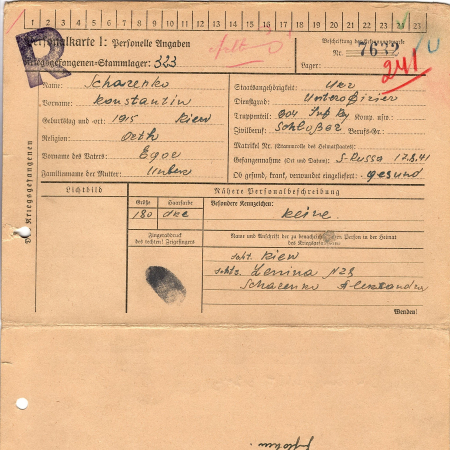 1 2 3 4 5 6 7 8 9 10 11 12 13 14 15 16 17 18 19 20 21 22 23 24 25
R
Personalkarte I: Personelle Angaben
Kriegsgefangenen-Stammlager: 323
Beschriftung der Erkennungsmarke
Nr. 7632
Lager:
241
Des Kriegsgefangenen
Name: Scharenko
Vorname: Konstantin
Geburtstag und -ort: 1915 Kiew
Religion: Orth
Vorname des Vaters: Egor
Familienname der Mutter: Unbek
Staatsangehörigkeit: Ukr
Dienstgrad: Unterofizier
Truppenteil: 904 Inf Rg Komp. usw.:
Zivilberuf: Schloßer Berufs-Gr.:
Matrikel Nr. (Stammrolle des Heimatstaates):
Gefangennahme (Ort und Datum): S. Russa 17.8.41
Ob gesund, krank, verwundet eingeliefert: gesund
Lichtbild
Nähere Personalbeschreibung
Größe Haarfarbe Besondere Kennzeichen:
180 dkl keine
Fingerabdruck
des rechten! Zeigefingers
Name und Anschrift der zu benachrichtigenden Person in der Heimat
des Kriegsgefangenen
Kiew
Lenina N28
Scharenko Alexandra
Wenden!